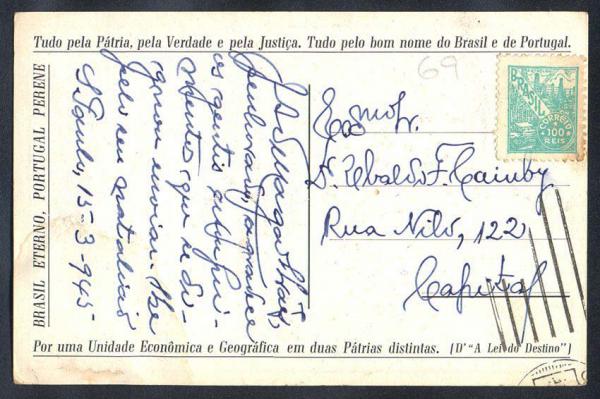 Tudo pela Pátria, pela Verdade e pela Justiça. Tudo pelo bom nome do Brasil e de Portugal.
BRASIL ETERNO, PORTUGAL PERENE
69
BRASIL
CORREIO
100
REIS
Exmo Sr.
Dr. Ubaldo F. Caiuby
Rua Nilo, 122
Capital
J. J. Magalhães,
penhorado, agradece
os gentis cumpri-
mentos que se di-
gnou enviar-lhe
pelo seu natalício
S. Paulo, 15-3-945
Por uma Unidade Econômica e Geográfica em duas Pátrias distintas. [D' "A Lei do Destino"]